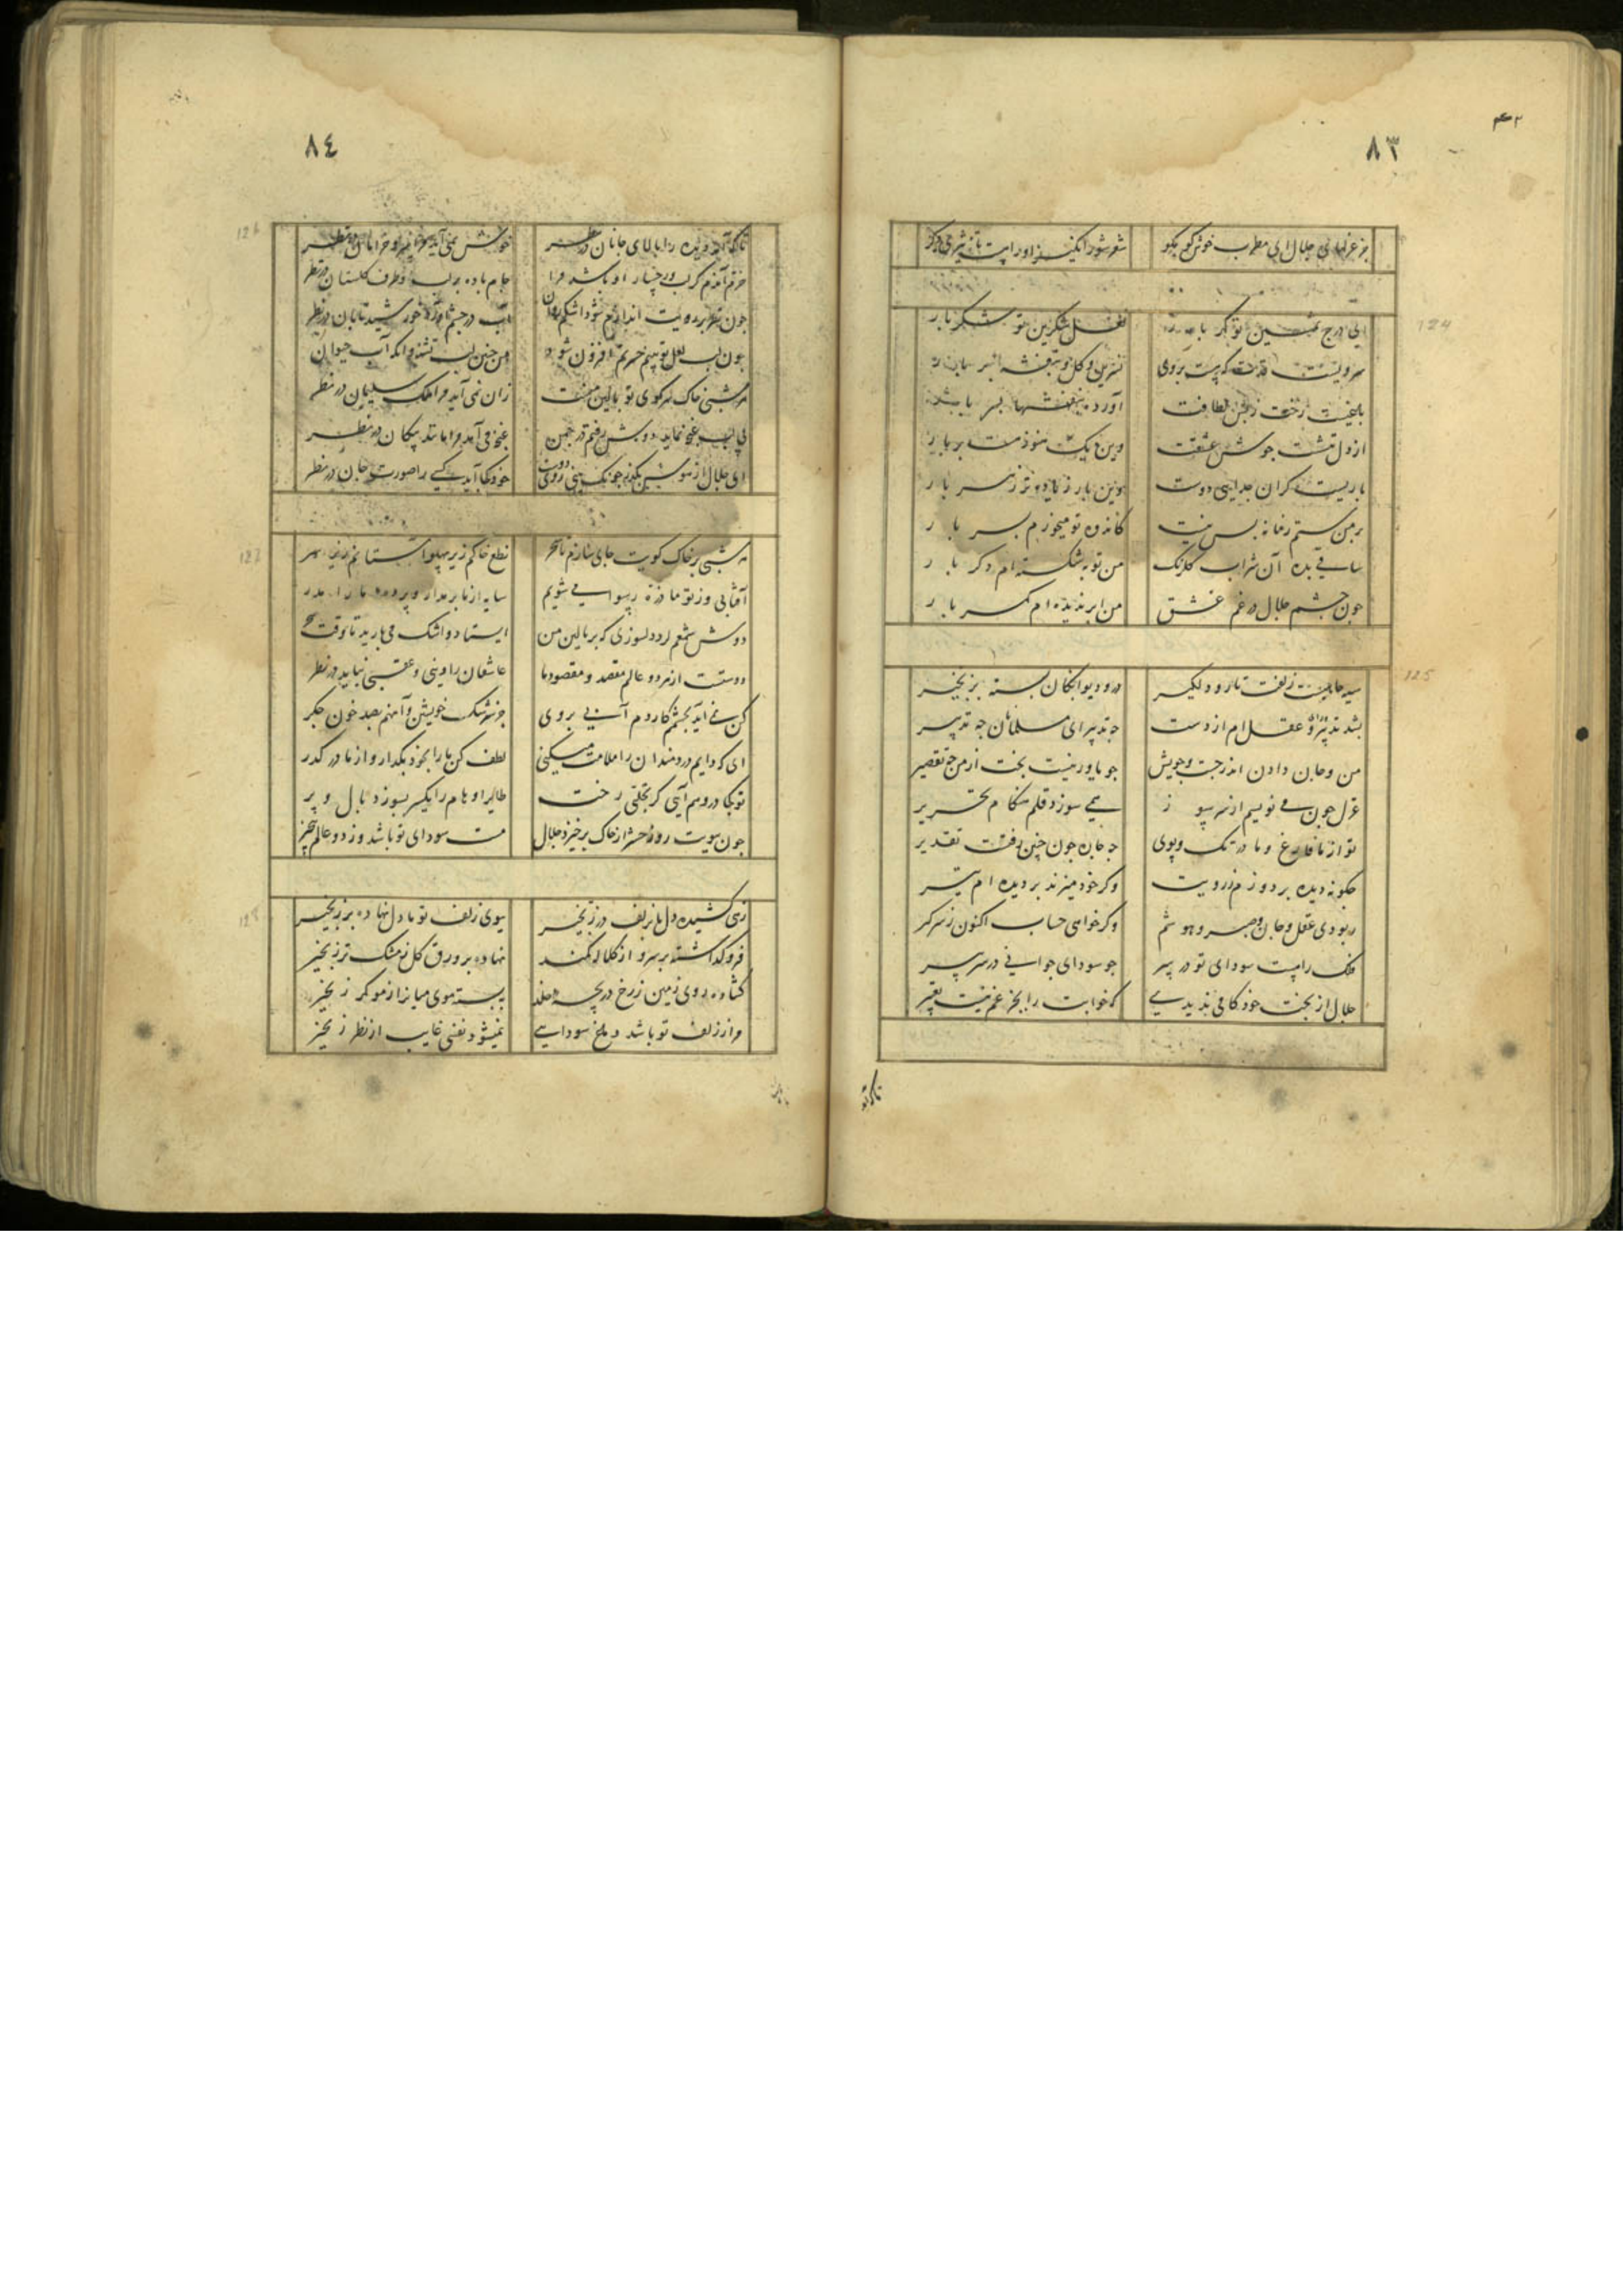 ۸۳
جز غزلهای جلال ای مطرب خوش گو مگو
شعر شورانگیز او را
124
ای درج تو گهر بار
لعل شکرین تو شکر بار
سرویست قدت که بروی
نسرین و گل و بنفشه بار
باغیست رخت لطافت
آورده بنفشها بار
از دل جوش عشقت
وین دیک هنوز بر بار
باریست گران جدایی دوست
وین بار زیاده تر ز سر بار
بر من ستم زمانه بس نیست
کاندوه تو میخورم بسر بار
ساقی بده آن شراب گلرنگ
من توبه شکسته ام دگر بار
چون چشم جلال در غم عشق
من ابر ندیده ام گهر بار
125
سیه زلفت تار و دلگیر
درو دیوانگان بسته بزنجیر
بشد تدبیر و عقلم از دست
چه تدبیر ای مسلمان چه تدبیر
من و جان دادن اندر جست و جویش
چو یاور نیست بخت از من چه تقصیر
غزل چون می نویسم از سر سوز
همی سوزد قلم هنگام تحریر
تو از ما فارغ و ما در تک و پوی
چه چاره چون چنین رفتست تقدیر
چگونه دیده بر دوزم ز رویت
وگر خود میزند بر دیده ام تیر
ربودی عقل و جان و صبر و هوشم
وگر خواهی حساب اکنون ز سر گیر
فلک راهست سودای تو در سر
چو سودای جوانی در سر پیر
جلال از بخت خود کامی ندیدی
که خوابت را بجز غم نیست تعبیر
۸٤
126
تا که آمد دیده را بالای جانان در نظر
خوش نمی آید مرا سرو خرامان در نظر
خرم آندم کز لب و رخسار او باشد مرا
جام باده بر لب و طرف گلستان در نظر
چون نظر بر رویت اندازم شود اشکم روان
آب در چشم آورد خورشید تابان در نظر
چون لب لعل تو بینم حیرتم افزون شود
من چنین لب تشنه وانگه آب حیوان در نظر
هر شبی خاک سر کوی تو بالین منست
زان نمی آید مرا ملک سلیمان در نظر
بی لب غنچه نماید دوش رفتم در چمن
غنچه می آمد مرا مانند پیکان در نظر
ای جلال از هوش بگذر چونک بینی روی دوست
خود کجا آید کسی را صورت جان در نظر
127
هر شبی بر خاک کویت جای سازم تا سحر
نطع خاکم زیر پهلو آستانم زیر سر
آفتابی وز تو ما ذره رسوا می شویم
سایه از ما بر مدار و پرده ما را مدر
دوش شمعم بد دلسوزی که بر بالین من
ایستاده اشک می بارید تا وقت سحر
دوستست از هر دو عالم مقصد و مقصود ما
عاشقان را دینی و عقبی نیاید در نظر
کس نمی آید بچشمم کارد آبی بروی
جز سرشک خویش و آنهم بصد خون جگر
ای که دایم دردمندان را ملامت میکنی
لطف کن ما را بخود بگذار و از ما در گذر
تو کجا در وهم آیی کز تجلی رخت
طایر اوهام را یکسر بسوزد بال و پر
چون بویت روز حشر از خاک برخیزد جلال
مست سودای تو باشد وز دو عالم بی خبر
128
زهی کشیده دل ما بزلف در زنجیر
ببوی زلف تو ما دل نهاده بر زنجیر
فرو گذاشته بر سرو از کلاله کمند
نهاده بر ورق گل ز مشک تر زنجیر
گشاده روی زمین ز رخ دریچه خلد
ببسته موی میانرا ز مو کمر زنجیر
مرا ز زلف تو باشد دماغ سودایی
نمیشود نفسی غایب از نظر زنجیر